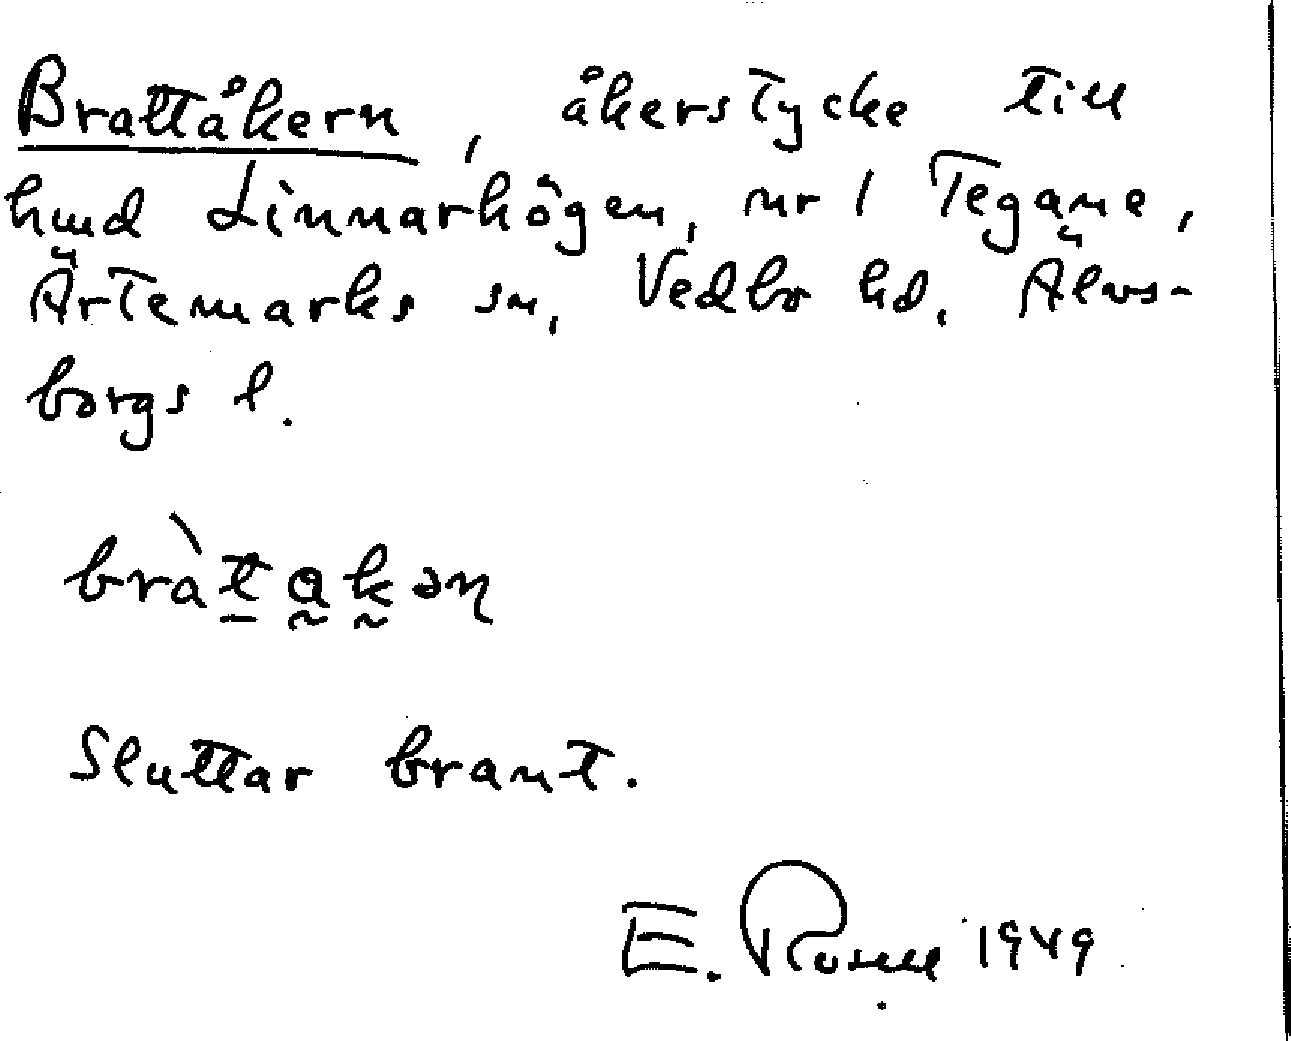 Brattåkern, åkerstycke till
hmd Linnarhögen, nr 1 Tegane,
Ärtemarks sn, Vedbo hd. Älvs-
borgs l.
Sluttar brant.
E. Rosell 1949